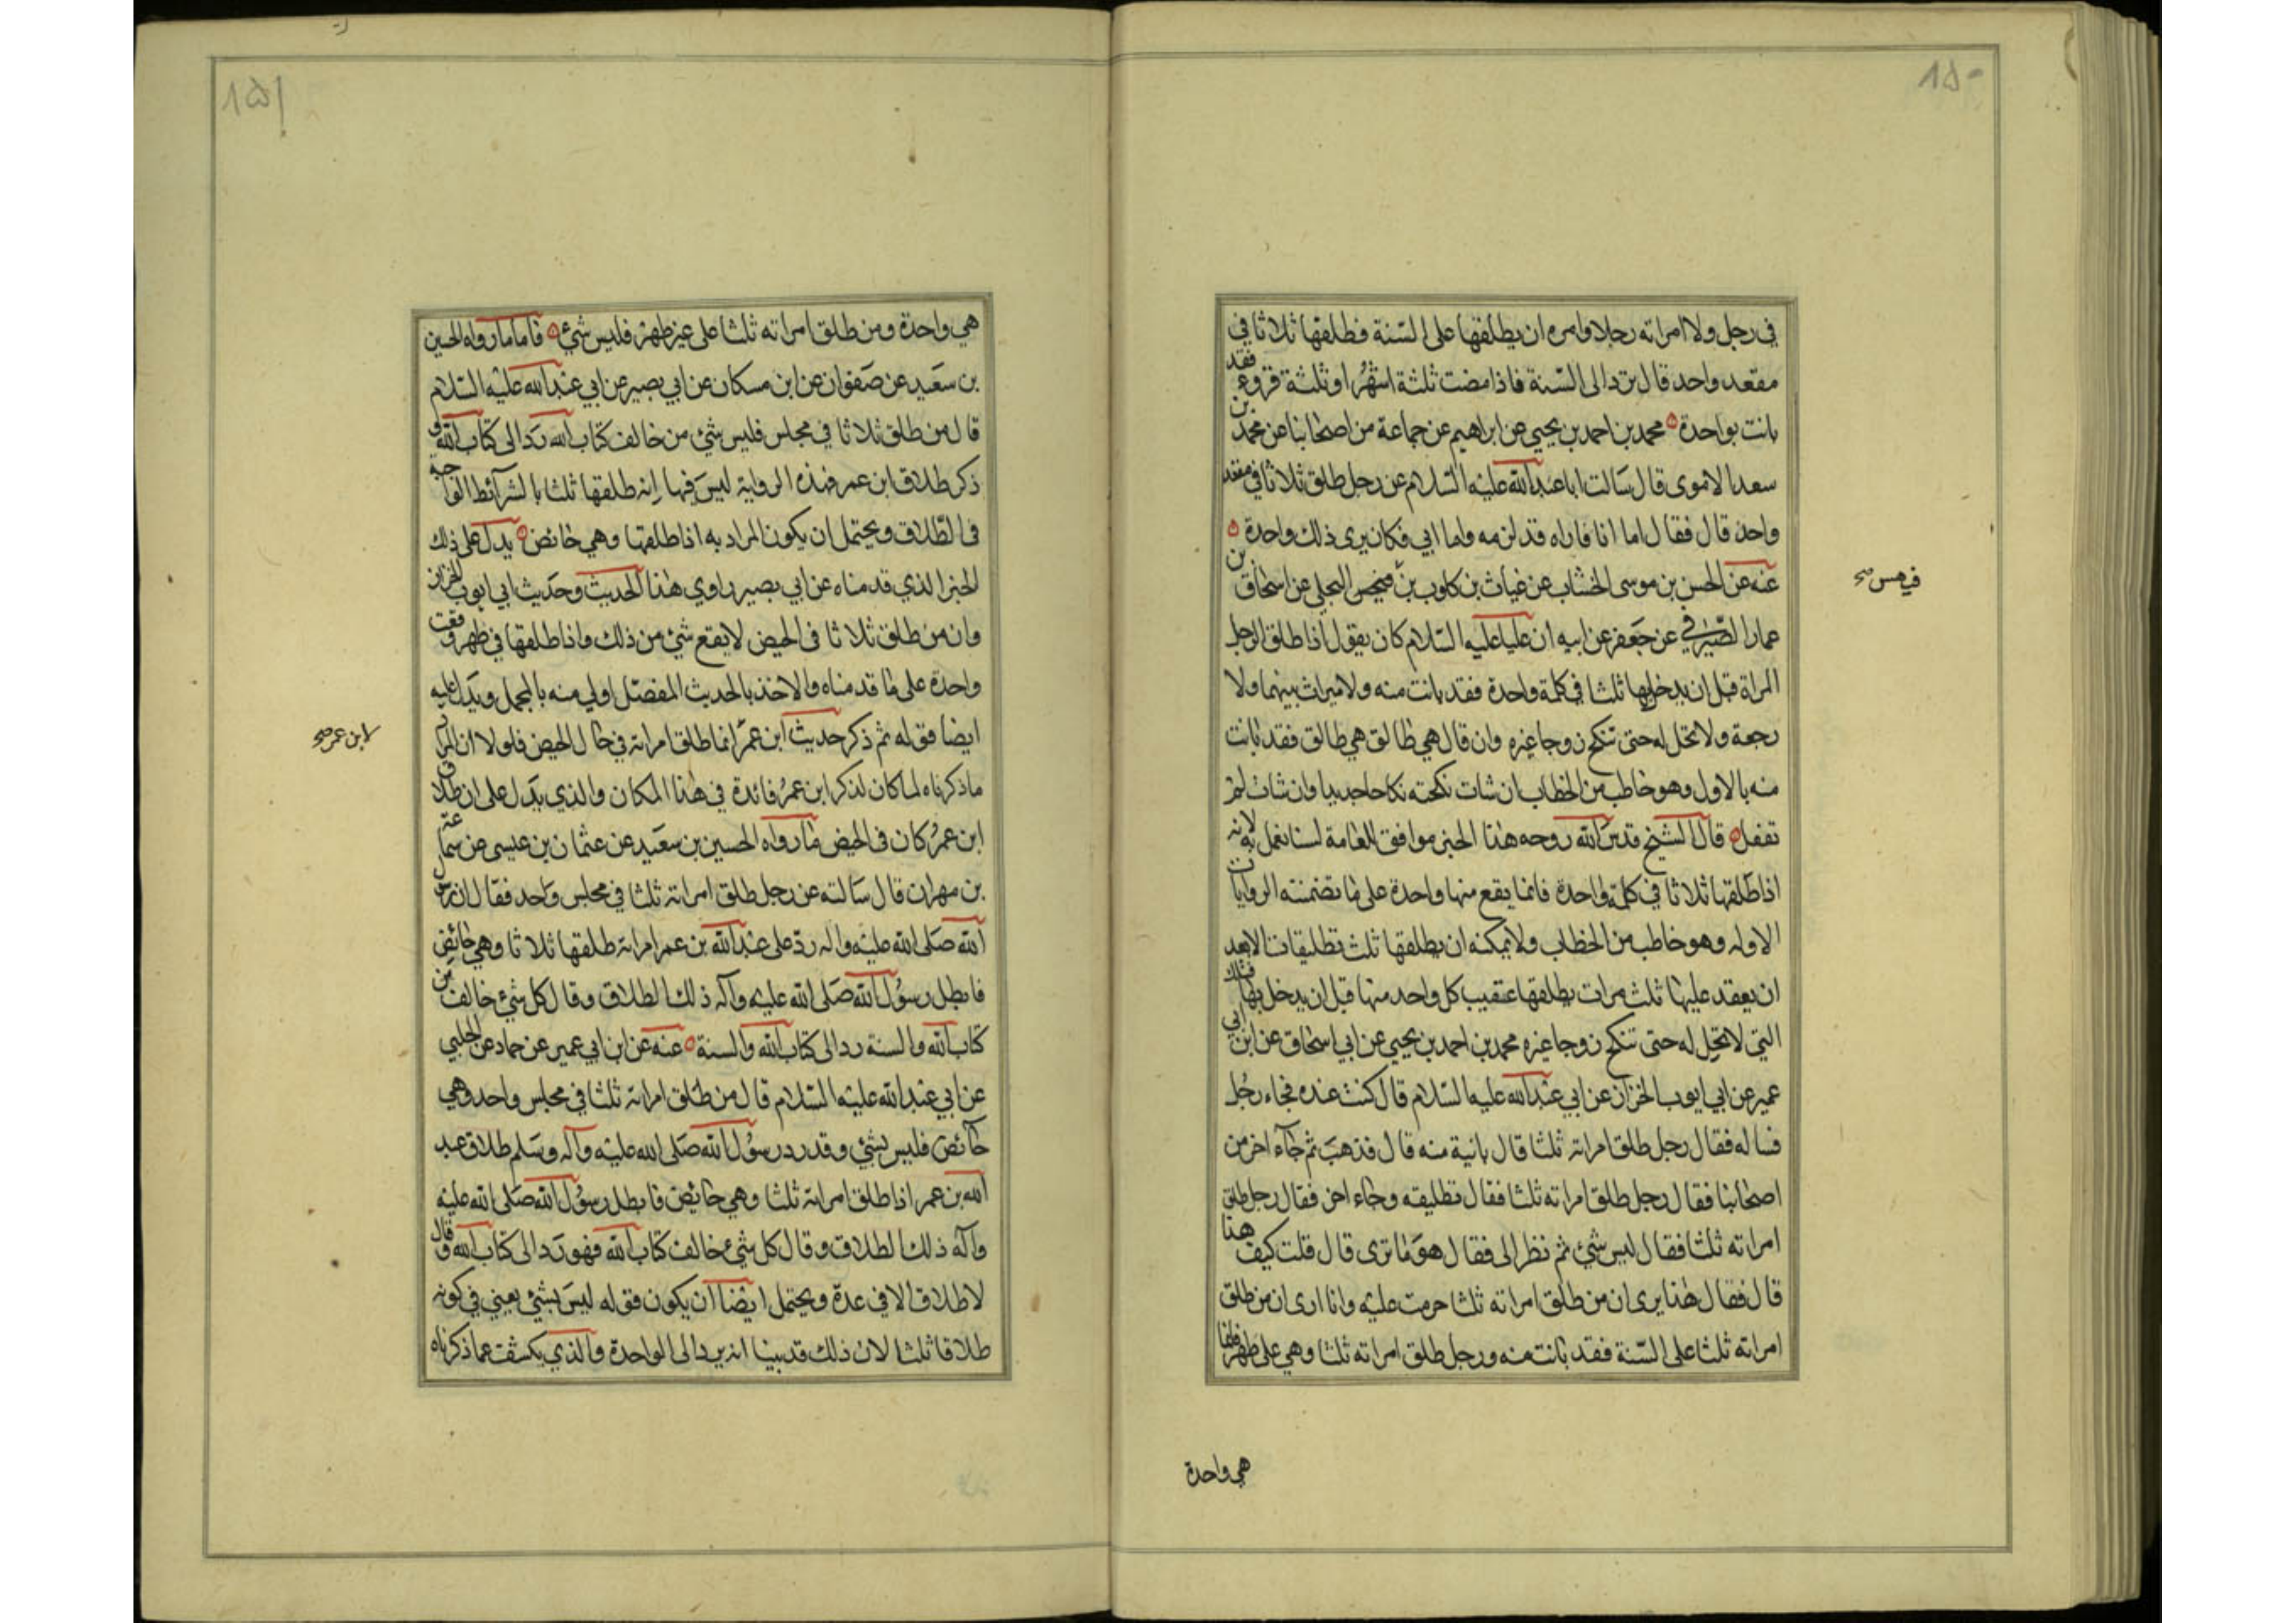 ١٥٠
في رجل ولا امراته رجلا وامره ان يطلقها على السّنة فطلقها ثلاثا في
مقعد واحد قال تردالى السّنة فاذا مضت ثلثة اشهُر او ثلثة قروء فقد
بانت بواحدة محمد بن احمد بن يحيى عن ابراهيم عن جماعة من اصحابنا عن محمد بن
سعد الاموى قال سَالت ابا عبد الله عليْه السّلام عن رجل طلق ثلاثا في مقعد
واحد قال فقال اما انا فاراه قد لزمه واما ابي فكان يرى ذلك واحدة
عنه عن الحسن بن موسى الخشاب عن غياث بن كلوب بن فيهس البجلي عن اسحاق بن
في هس صح
عمار الصّيرفي عن جَعفر عن ابيه ان عليا عليه السّلام كان يقول اذا طلق الرجل
المراة قبل ان يدخل بها ثلثا في كلمة واحدة فقد بانت منه ولا ميراث بينهما ولا
رجعة ولا تحل له حتى تنكح زوجا غيره وان قال هي طالق هي طالق فقد بانت
منه بالاول وهو خاطب من الخطاب ان شات نكحته نكاحا جديدا وان شات لم
تفعل قال الشيخ قدس الله روحه هذا الخبر موافق للعامة لسنا نعمل به لانه
اذا طلقها ثلاثا في كلمة واحدة فانما يقع منها واحدة على ما تضمنته الروايات
الاوله وهو خاطب من الخطاب ولا يمكنه ان يطلقها ثلث تطليقات الا بعد
ان يعقد عليها ثلث مرات يطلقها عقيب كل واحد منها قبل ان يدخل بها فتلك
التي لا تحل له حتى تنكح زوجا غيره محمد بن احمد بن يحيى عن ابي اسحاق عن ابن ابي
عمير عن ابي ايوب الخزاز عن ابي عبد الله عليه السّلام قال كنت عنده فجاء رجُل
فساله فقال رجل طلق امراته ثلثا قال بانية منه قال فذهبَ ثم جآء اخر من
اصحابنا فقال رجل طلق امراته ثلثا فقال تطليقه وجاء اخر فقال رجل طلق
امراته ثلثا فقال ليس شئ ثم نظر الى فقال هوَ ما ترى قال قلت كيف هذا
قال فقال هذا يرى ان من طلق امراته ثلثا حرمت عليْه وانا ارى ان من طلق
امراته ثلثا على السّنة فقد بانت منه ورجل طلق امراته ثلثا وهي على طهر فانما
هي واحدة
١٥١
هي واحدة ومن طلق امراته ثلثا على غير طهر فليس شئ فاما ما رواه الحسين
بن سعَيد عن صَفوان عن ابن مسكان عن ابي بصير عن ابي عبد الله عليْه السّلام
قال من طلق ثلاثا في مجلس فليس شئ من خالف كتاب الله رَد الى كتاب الله و
ذكر طلاق ابن عمر فهذه الرواية ليسَ فيها انه طلقها ثلثا بالشرآئط الواجبة
في الطّلاق ويحتمل ان يكون المراد به اذا طلقها وهي حائض يدل على ذلك
الخبر الذي قدمناه عن ابي بصير راوي هذا الحديث وحَديث ابي ايوب الخزاز
وان من طلق ثلاثا فى الحيض لا يقع شئ من ذلك واذا طلقها في طهر وقعت
واحدة على ما قدمناه والاخذ بالحديث المفصّل اولى منه بالمجمل ويدل عليه
ايضا قوله ثم ذكر حديث ابن عمر انما طلق امراته في حال الحيض فلولا ان المراد
لابن عمر صح
ماذكرناه لما كان لذكر ابن عمرُ فائدة في هذا المكان والذي يدَل على ان طلاق
ابن عمرُ كان فى الحيض ما رواه الحسين بن سعَيد عن عثمان بن عيسى عن سماعة
بن مهران قال سَالته عن رجل طلق امراته ثلثا في مجلس واحد فقال ان رسول
الله صَلى الله عليْه واله ردّ على عبد الله بن عمر امراته طلقها ثلاثا وهي حائض
فابطل رسوُل الله صَلى الله عليْه وآله ذلك الطلاق وقال كل شئ خالف من
كتاب الله والسنة رد الى كتاب الله والسنة عنه عن ابن ابي عمير عن حماد عن الحلبي
عن ابي عبد الله عليْه السّلام قال من طلق امراته ثلثا في مجلس واحد وهي
حآئض فليس بشئ وقد رد رسوُل الله صَلى الله عليْه وآله وسَلم طلاق عبد
الله بن عمر اذا طلق امراته ثلثا وهي حائض فابطل رسوُل الله صَلى الله عليْه
وآله ذلك الطلاق وقال كل شئ خالف كتاب الله فهو رَد الى كتاب الله وقال
لا طلاق الا في عدّة ويحتمل ايضا ان يكون قوله ليسَ بشئ يعني في كونه
طلاقا ثلثا لان ذلك قد بينا انه يرد الى الواحدة والذي يكشف عما ذكرناه